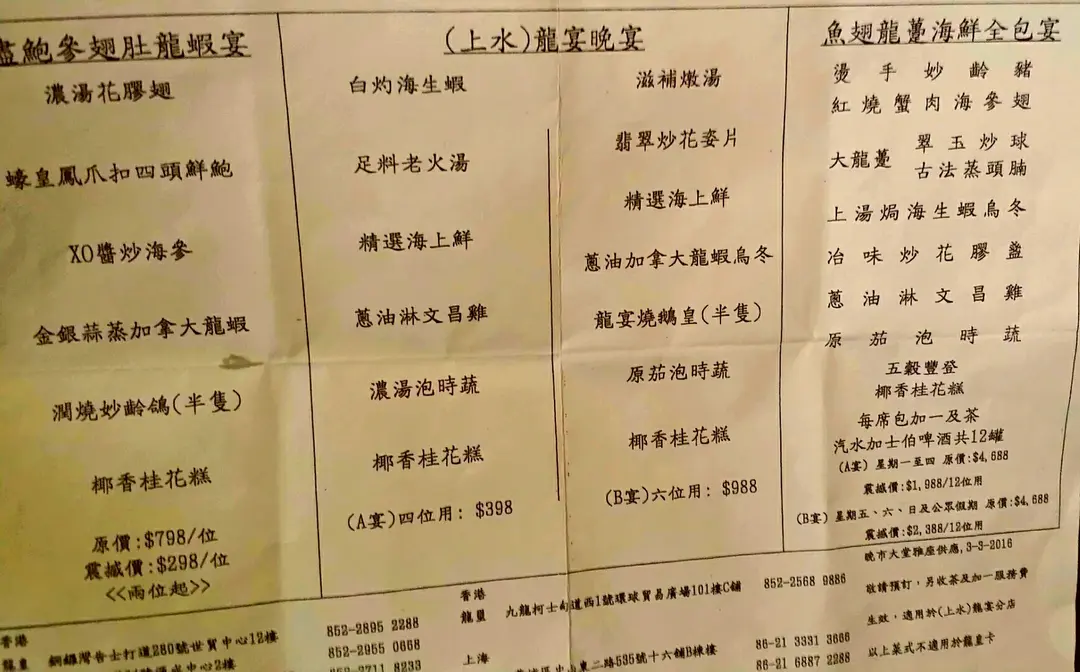 鮑參翅肚龍蝦宴
濃湯花膠翅
蠔皇鳳爪扣四頭鮮鮑
XO醬炒海參
金銀蒜蒸加拿大龍蝦
潤燒妙齡鴿(半隻)
椰香桂花糕
原價:$798/位
震撼價:$298/位
<<兩位起>>
(上水)龍宴晚宴
白灼海生蝦
足料老火湯
精選海上鮮
蔥油淋文昌雞
濃湯泡時蔬
椰香桂花糕
(A宴)四位用: $398
滋補燉湯
翡翠炒花姿片
精選海上鮮
蔥油加拿大龍蝦烏冬
龍宴燒鵝皇(半隻)
原茄泡時蔬
椰香桂花糕
(B宴)六位用: $988
魚翅龍躉海鮮全包宴
燙手妙齡豬
紅燒蟹肉海參翅
大龍躉 翠玉炒球
古法蒸頭腩
上湯焗海生蝦烏冬
冶味炒花膠盞
蔥油淋文昌雞
原茄泡時蔬
五穀豐登
椰香桂花糕
每席包加一及茶
汽水加士伯啤酒共12罐
(A宴) 星期一至四 原價:$4,688
震撼價:$1,988/12位用
(B宴) 星期五、六、日及公眾假期 原價:$4,688
震撼價:$2,388/12位用
晚市大堂雅座供應,3-3-2016
敬請預訂,另收茶及加一服務費
生效,適用於(上水)龍宴分店
以上菜式不適用於龍皇卡
香港
龍皇 銅鑼灣告士打道280號世貿中心12樓 852-2895 2288
852-2955 0668
852-2711 8233
香港
龍皇 九龍柯士甸道西1號環球貿易廣場101樓C舖 852-2568 9886
上海
中山東二路535號十六舖B棟樓 86-21 3331 3666
86-21 6887 2288